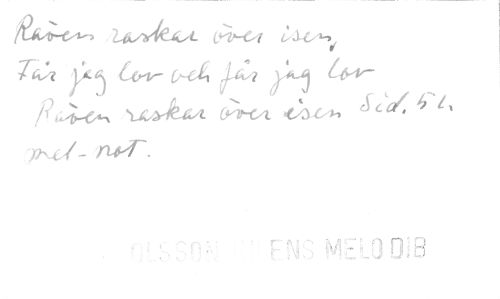 Räven raskar över isen,
Får jag lov och får jag lov
Räven raskar över isen Sid. 51.
mel-not.
OLSSON ENS MELODIB